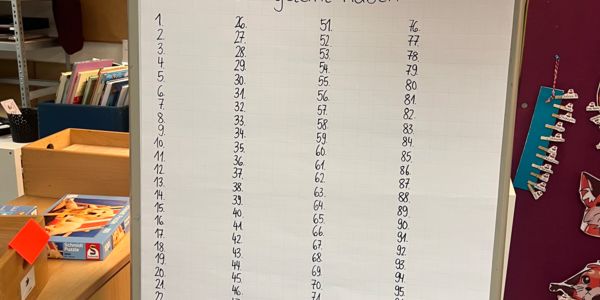 haben
1.
2.
3.
4.
5.
6.
7.
8.
9.
10.
11.
12.
13.
14.
15.
16.
17.
18.
19.
20.
21.
22.
26.
27.
28.
29.
30.
31.
32.
33.
34.
35.
36.
37.
38.
39.
40.
41.
42.
43.
44.
45.
46.
51.
52.
53.
54.
55.
56.
57.
58.
59.
60.
61.
62.
63.
64.
65.
66.
67.
68.
69.
70.
71.
76.
77.
78.
79.
80
81.
82.
83.
84.
85.
86.
87.
88.
89.
90.
91.
92.
93.
94.
95.
Schmidt
Puzzle